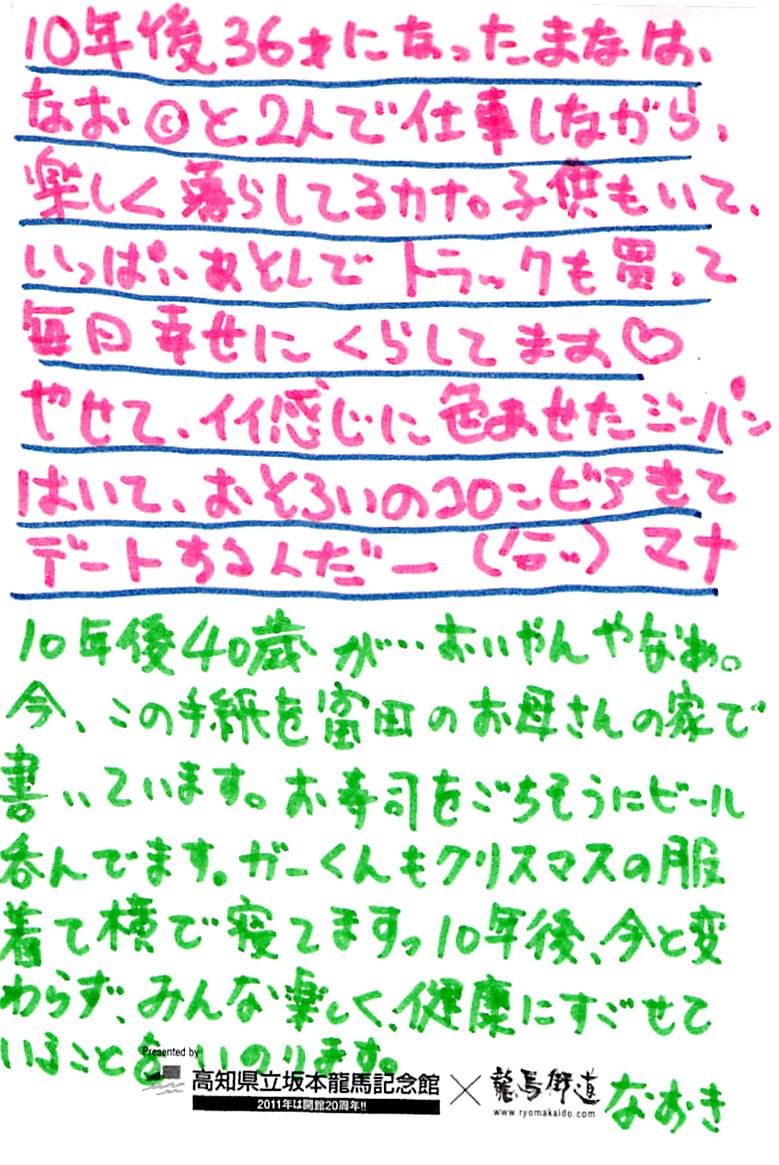 10年後36才になったまなは、
なお©と2人で仕事しながら、
楽しく落らしてるカナ。子供もいて、
いっぱいあそんで トラックも買って
毎日幸せに くらしてます♡
やせて、イイ感じに色あせたジーパン
はいて、おそろいのコロンビアきて
デートするんだー マナ
10年後40歳が…おいやんやなあ。
今、この手紙を富田のお母さんの家で
書いています。お寿司をごちそうにビール
呑んでます。ガーくんもクリスマスの服
着て横で寝てますっ10年後、今と変
わらず、みんな楽しく、健康にすごせて
いることをいのります。
Presented by
高知県立坂本龍馬記念館 × 龍馬街道
2011年は開館20周年!!
www.ryomakaido.com
なおき